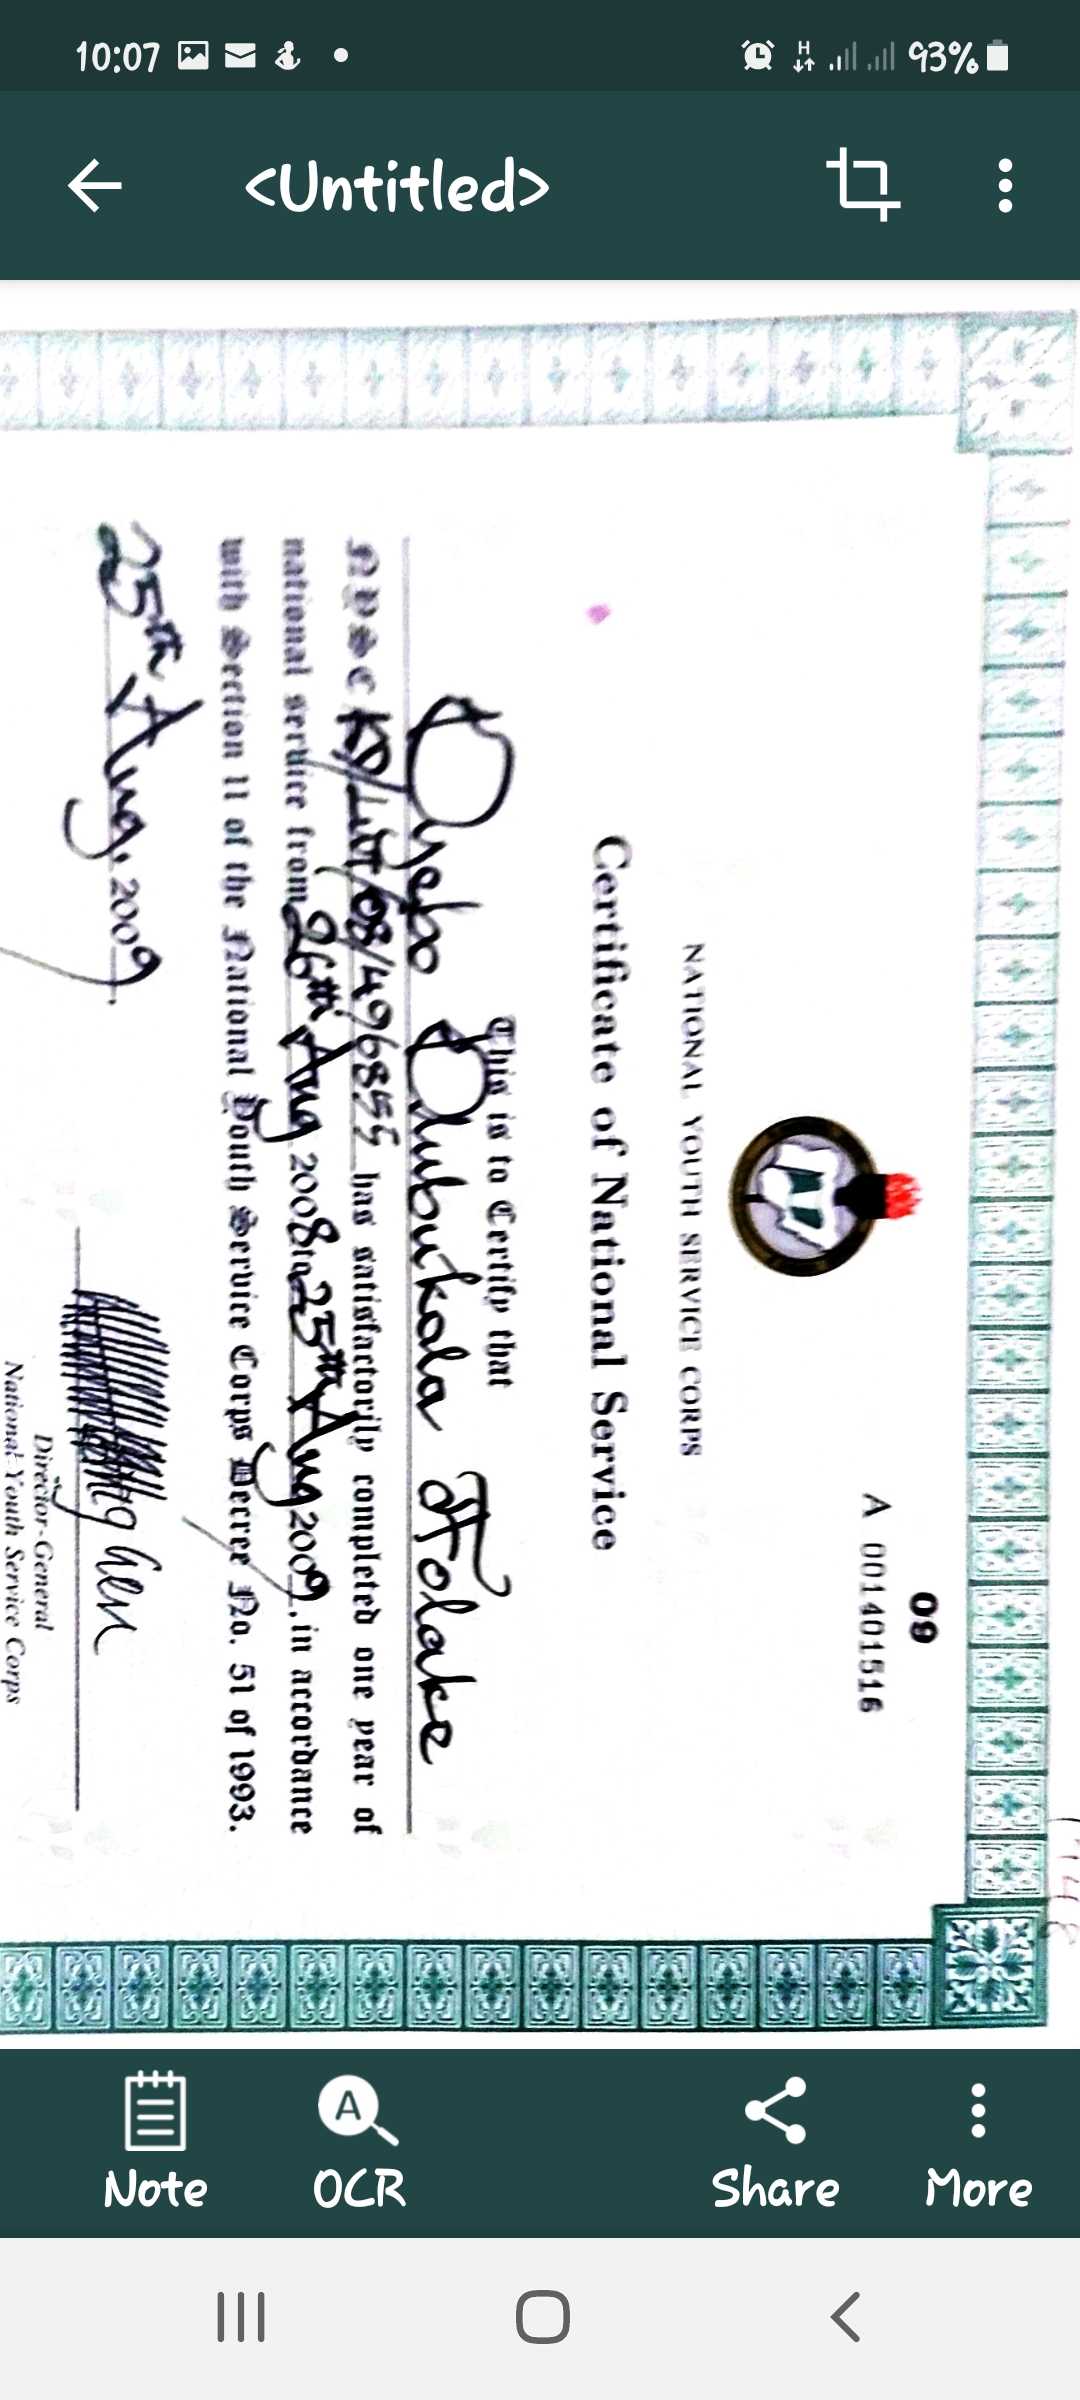 10:07
H
93%
<Untitled>
09
A 001401516
NATIONAL YOUTH SERVICE CORPS
Certificate of National Service
This is to Certify that
Oyebo Olubukola Folake
NYSC KD/ /08/496855 has satisfactorily completed one year of
national service from 26th Aug 2008 to 25th Aug 2009, in accordance
with Section 11 of the National Youth Service Corps Decree No. 51 of 1993.
25th Aug, 2009
Director-General
National Youth Service Corps
Note
OCR
Share
More